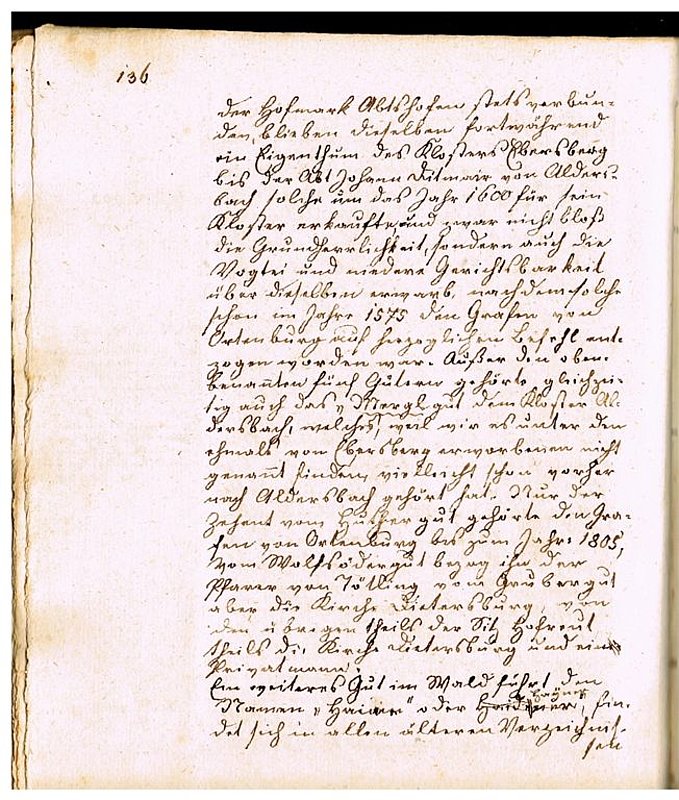 136
der Hofmark Abtshofen stets verbun-
den, blieben dieselben fortwährend
ein Eigenthum des Klosters Ebersberg
bis der Abt Johann Ditmair von Alders-
bach solche um das Jahr 1600 für sein
Kloster erkaufte und zwar nicht bloß
die Grundherrlichkeit, sondern auch die
Vogtei und niedere Gerichtsbarkeit
über dieselben erwarb, nachdem solche
schon im Jahre 1575 den Grafen von
Ortenburg auf herzoglichen Befehl ent-
zogen worden war. Außer den oben-
benannten fünf Gütern gehörte gleichzei-
tig auch das "Mergl-gut dem Kloster Al-
dersbach, welches, weil wir es unter den
ehmals von Ebersberg erworbenen nicht
genannt finden, vielleicht schon vorher
nach Aldersbach gehört hat. Nur der
Zehent vom Huthergut gehörte den Gra-
fen von Ortenburg bis zum Jahre 1805,
vom Wolfsödergut bezog ihn der
Pfarer von Tötling vom Grubergut
aber die Kirche Dietersburg, von
den übrigen theils der Sitz Hohreut
theils die Kirche Dietersburg und ein
Privatmann.
Ein weiteres Gut im Wald führt den
Namen "Haiair" oder Hayner, fin-
det sich in allen älteren Verzeichnis-
sen